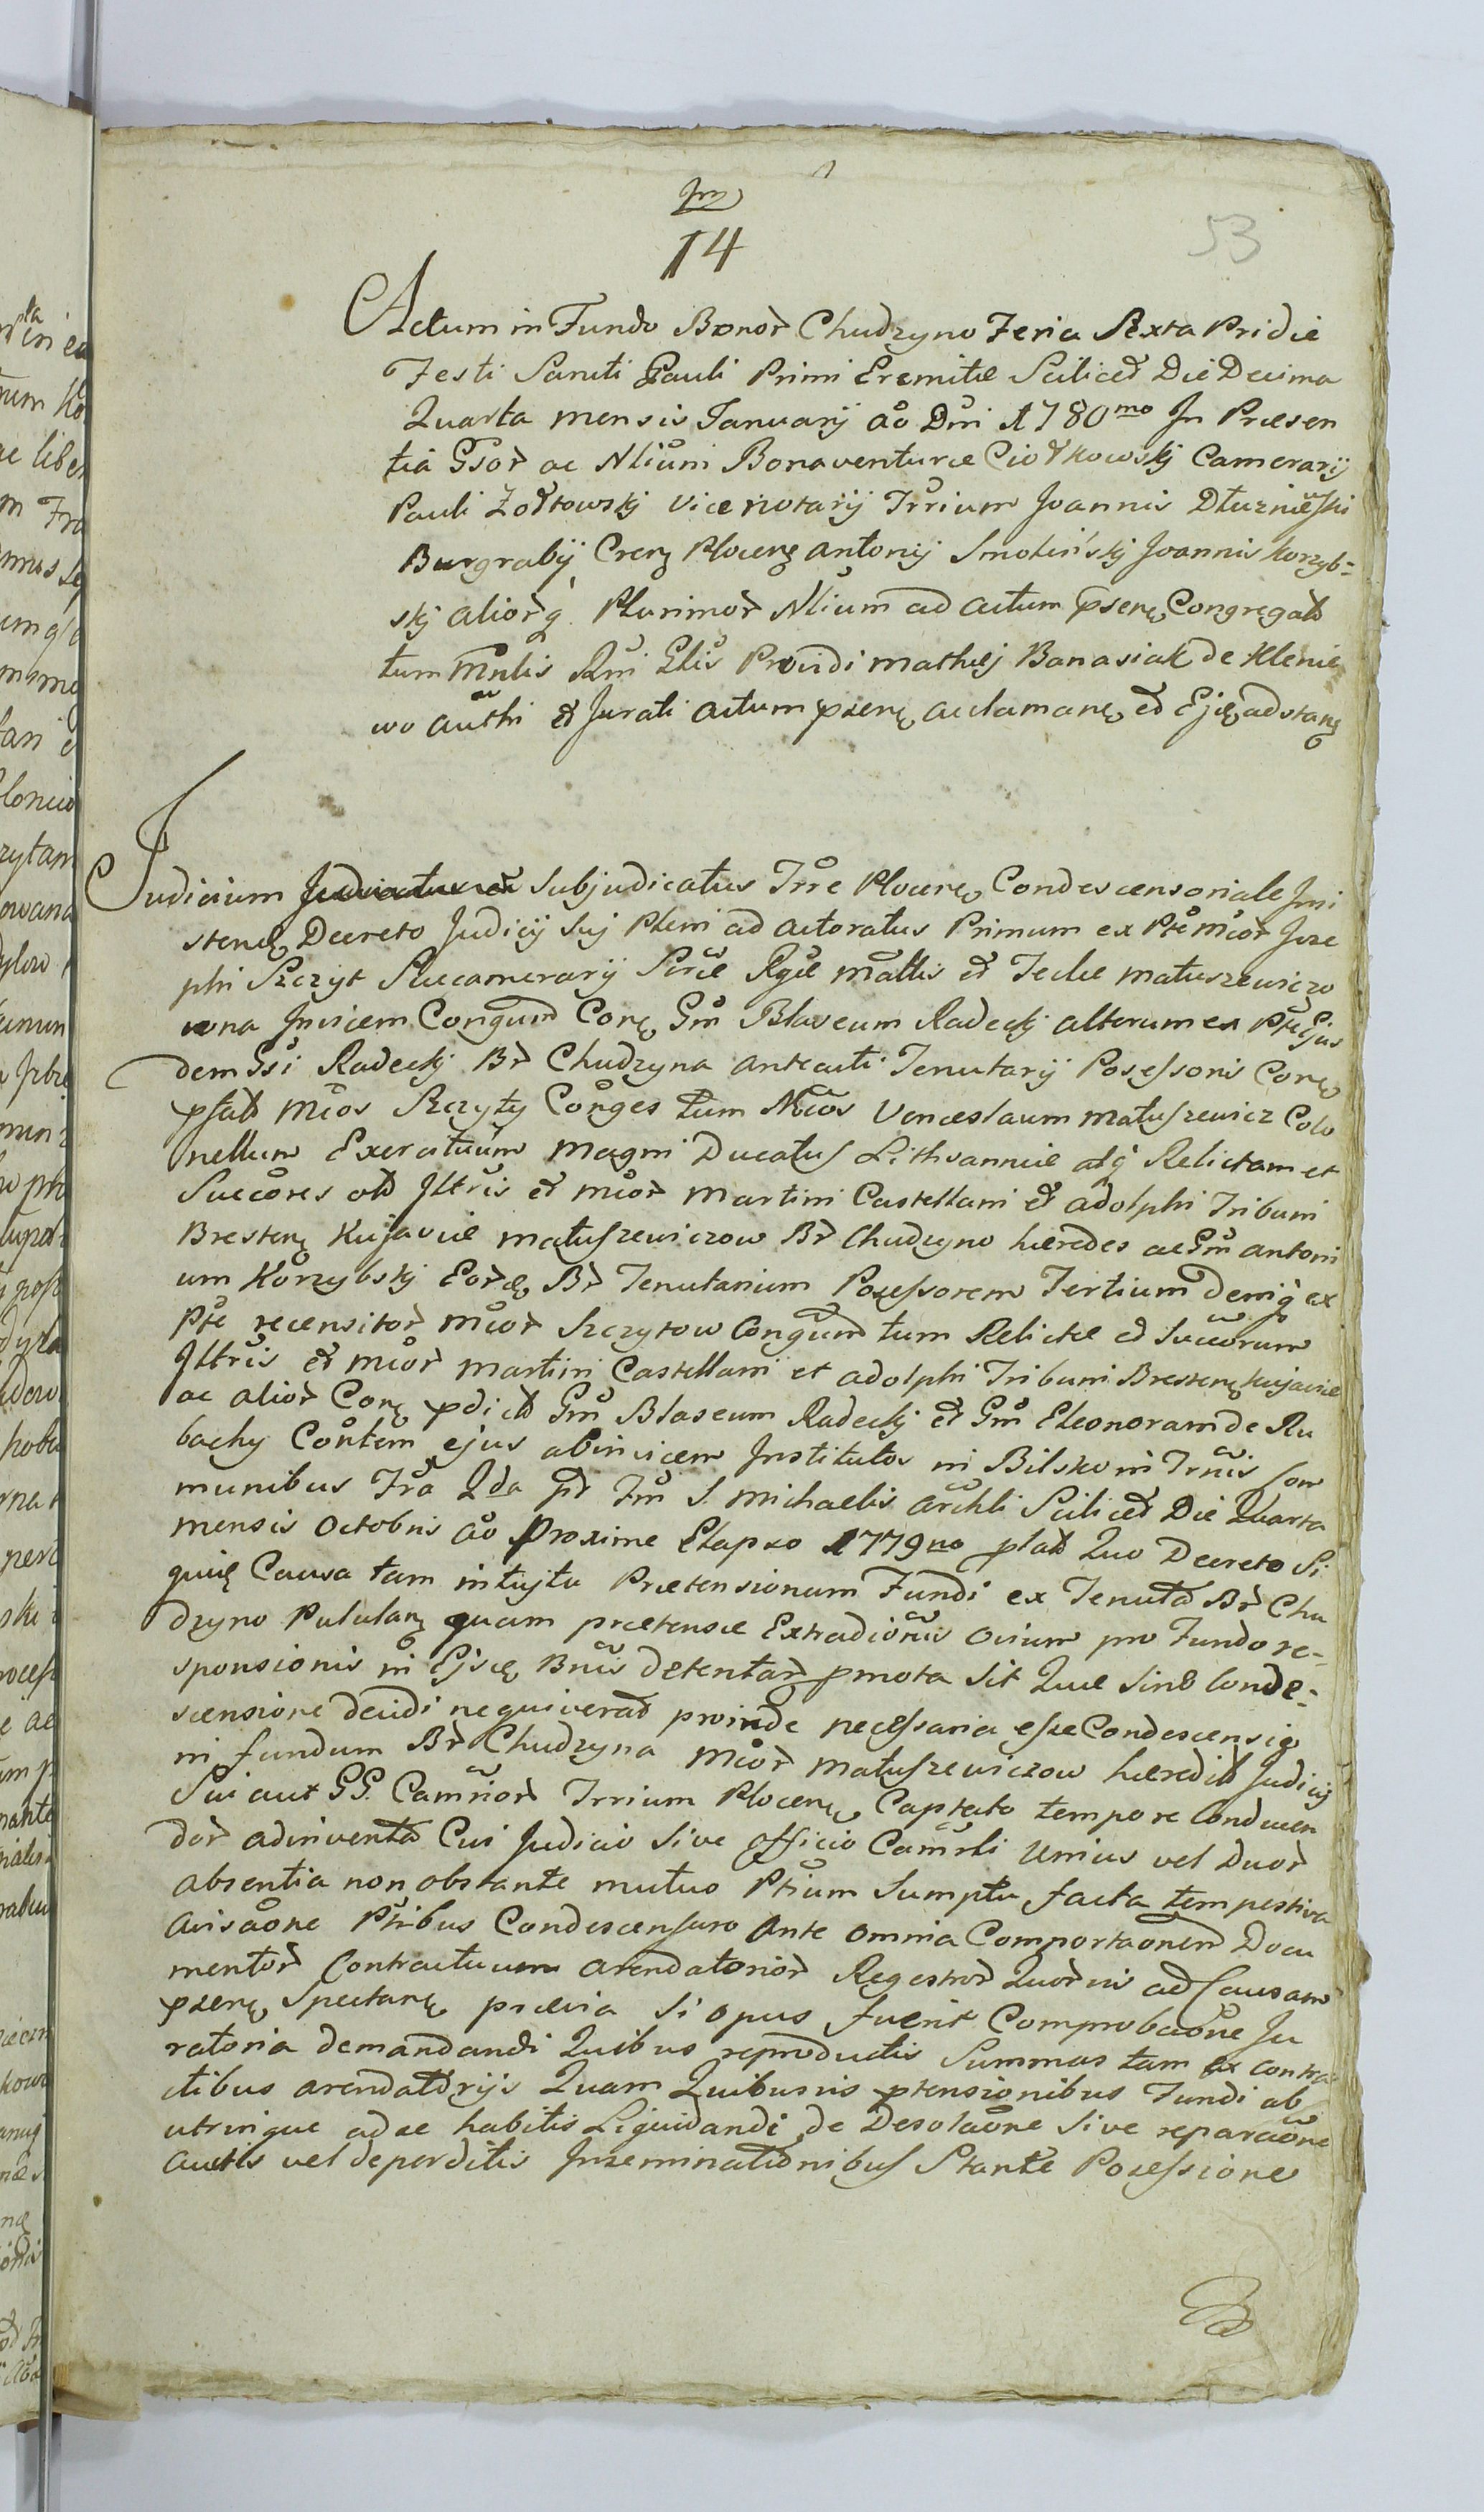 53
14
Actum in Fundo Bonor Chudzyno Feria Sexta Pridie
Festi Sancti Pauli Primi Eremitæ Scilicet Die Decima
Quarta mensis Januarij ao Dni 1780mo In Præsen
tia Gsor ac Nlium Bonaventuræ Ciołkowskj Camerarij
Pauli Żołtowskj Vice notarij Trrium Joannis Dłuzniewski
Burgrabij Crens Plocens Antonij Smoliń'skj Joannis Korzyb=
skj aliorq Plurimor Nlium ad actum psens Congregat
tum Mnlis Rni Glis Providi mathiej Banasiak de Klenie
wo authi et Jurati actum psens acclamans et Ejus adstans
Judicium Subjudicatus Trre Plocens Condescensoriale Jnni
stens Decreto Judicij Suj Pleni ad actoratus Primum ex Pte Mcor Joze
phi Szczyt Succamerarij Sræ Rgiæ Mattis et Teclæ Matuszewiczo
wna Jnvicem Congum Cons Gm Blaseum Radeckj alterum ex Pte Ejus
dem Gsi Radeckj Br Chudzyna anteacti Tenutarij Possessoris Cons
psat Mcos Szczyty Conges tum Mcos Venceslaum Matuszewicz Colo
nellum Exercituum Magni Ducatus Lithvanniæ atq Relictam et
Succores olt Jltris et Mcor Martini Castellani et Adolphi Tribuni
Brestens Kujaviæ Matuszewiczow Br Chudzyno hæredes ac Gm Antoni
um Korzybskj Eord Br Tenutarium Possessorem Tertium deniq ex
Pte recensitor Mcor Szczytow Congum tum Relictæ et Succorum
Jltris et Mcor Martini Castellani et Adolphi Tribuni Brestens Kujaviæ
ac alior Cons pdict Gm Blaseum Radeckj et Gm Eleonoram de Ru
bachy Contem ejus abinvicem Institutos in Bilsko in Trnis Com
munibus Fra 2da pt Fm S. Michaelis Archli Scilicet Die Quarta
mensis Octobris ao Proxime Elapso 1779no plat Quo Decreto Si
quid Causa tam intujtu Prætensionum Fundi ex Tenuta Br Chu
dzyno Pululans quam prætensæ Extradionis ovium pro Fundo re=
sponsionis in Ejsd Bnis detentar pmota sit Quæ sine Conde=
scensione decidi nequiverat proinde necessaria esse Condescensio
in fundum Br Chudzyna Mcor Matuszewiczow hæredit Judicij
Sui aut GG. Camrior Trrium Plocens Captato tempore Conducen
dor adinventa Cui Judicio Sive officio Camrli Unius vel Duor
absentia non obstante mutuo Ptium Sumptu facta tempestiva
avisaone Ptibus Condescensuro Ante omnia Comportaonem Docu
mentor Contractuum arendatorior Regestror Quorvis ad Causam
psens Spectans prævia Si opus fuerit Comprobaone Ju
ratoria demandandi Quibus reproductis Summas tam ex contra
ctibus arendatorijs Quam Quibusvis ptensionibus Fundi ab
utrinque ad se habitis Liquidandi de Desolaone Sive reparaone
auctis vel deperditis Inseminationibus Stante Possessione